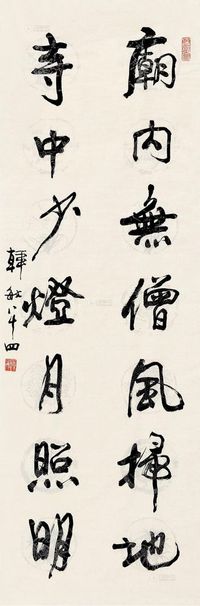 廟内無僧風掃地
寺中少燈月照明
韓敏八十四